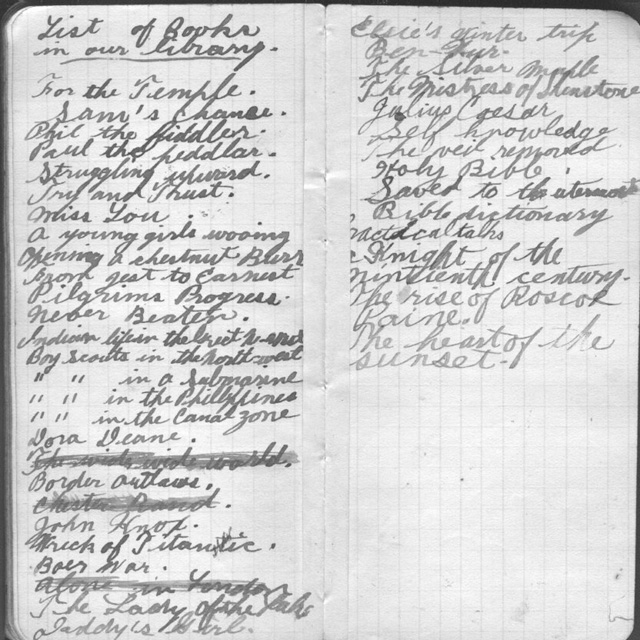 List of Books
in our library.
For the Temple.
Sam's Chance.
Phil the fiddler.
Paul the peddlar.
Struggling upward.
Try and Trust.
Miss Lou.
A young girls wooing
Opening a chestnut Burr
From jest to Earnest
Pilgrims Progress.
Never Beaten.
Indian life in the Great N-west
Boy Scouts in the north-west
" " in a Submarine
" " in the Philippines
" " in the Canal zone
Dora Deane.
The wide wide world.
Border outlaws.
Chester Rand.
John Knox.
Wreck of Titantic.
Boer War.
Alone in London
The Lady of the Lake
Daddy's Girl.
Elsie's winter trip
Ben-Hur.
The Silver Maple
The Mistress of
Julius Caesar
Self knowledge
The veil removed
Holy Bible.
Saved to the utermost
Bible dictionary
talks
Knight of the
ninteenth century.
The rise of Roscoe
Paine.
The heart of the
sunset.